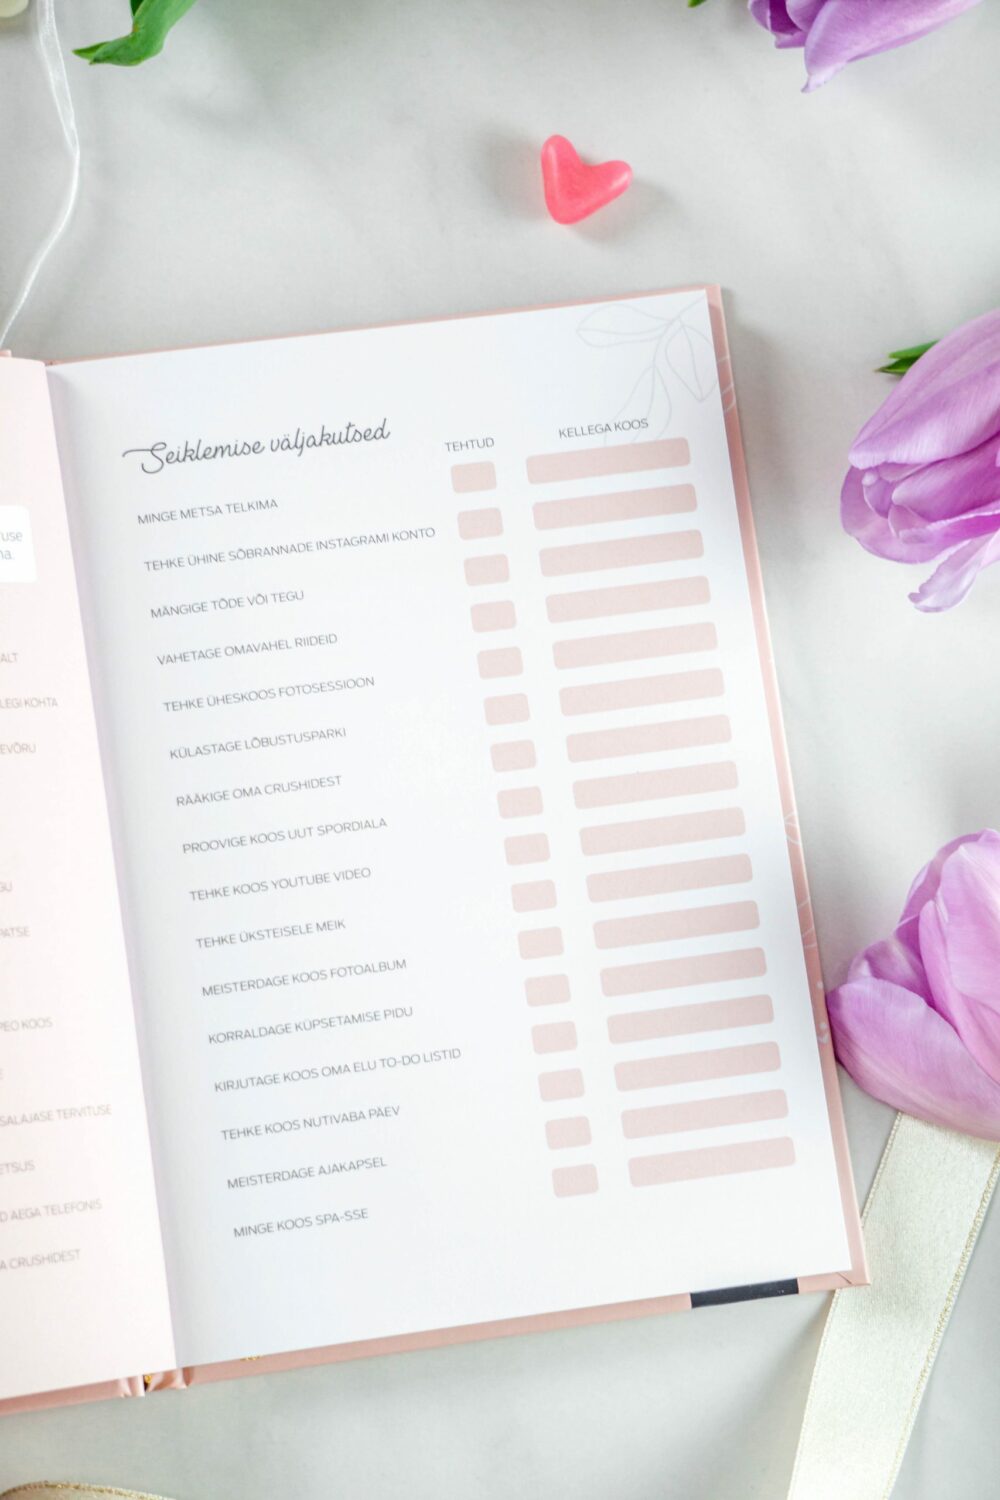 use
na
ALT
LEGI KOHTA
EVÕRU
GU
PATSE
PEO KOOS
E
SALAJASE TERVITUSE
ETSUS
D AEGA TELEFONIS
A CRUSHIDEST
Seiklemise väljakutsed
TEHTUD
KELLEGA KOOS
MINGE METSA TELKIMA
TEHKE ÜHINE SÕBRANNADE INSTAGRAMI KONTO
MÄNGIGE TÕDE VÕI TEGU
VAHETAGE OMAVAHEL RIIDEID
TEHKE ÜHESKOOS FOTOSESSIOON
KÜLASTAGE LÕBUSTUSPARKI
RÄÄKIGE OMA CRUSHIDEST
PROOVIGE KOOS UUT SPORDIALA
TEHKE KOOS YOUTUBE VIDEO
TEHKE ÜKSTEISELE MEIK
MEISTERDAGE KOOS FOTOALBUM
KORRALDAGE KÜPSETAMISE PIDU
KIRJUTAGE KOOS OMA ELU TO-DO LISTID
TEHKE KOOS NUTIVABA PÄEV
MEISTERDAGE AJAKAPSEL
MINGE KOOS SPA-SSE